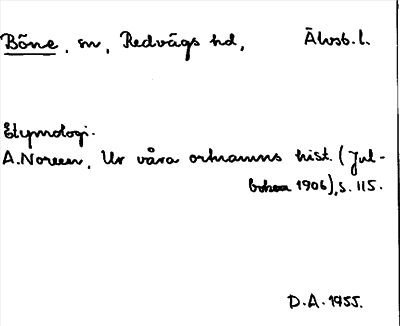 Böne, sn, Redvägs hd, Älvsb. l.
Etymologi.
A. Noreen, Ur våra ortnamns hist. (Jul-
boken 1906), s. 115.
D.A. 1955.